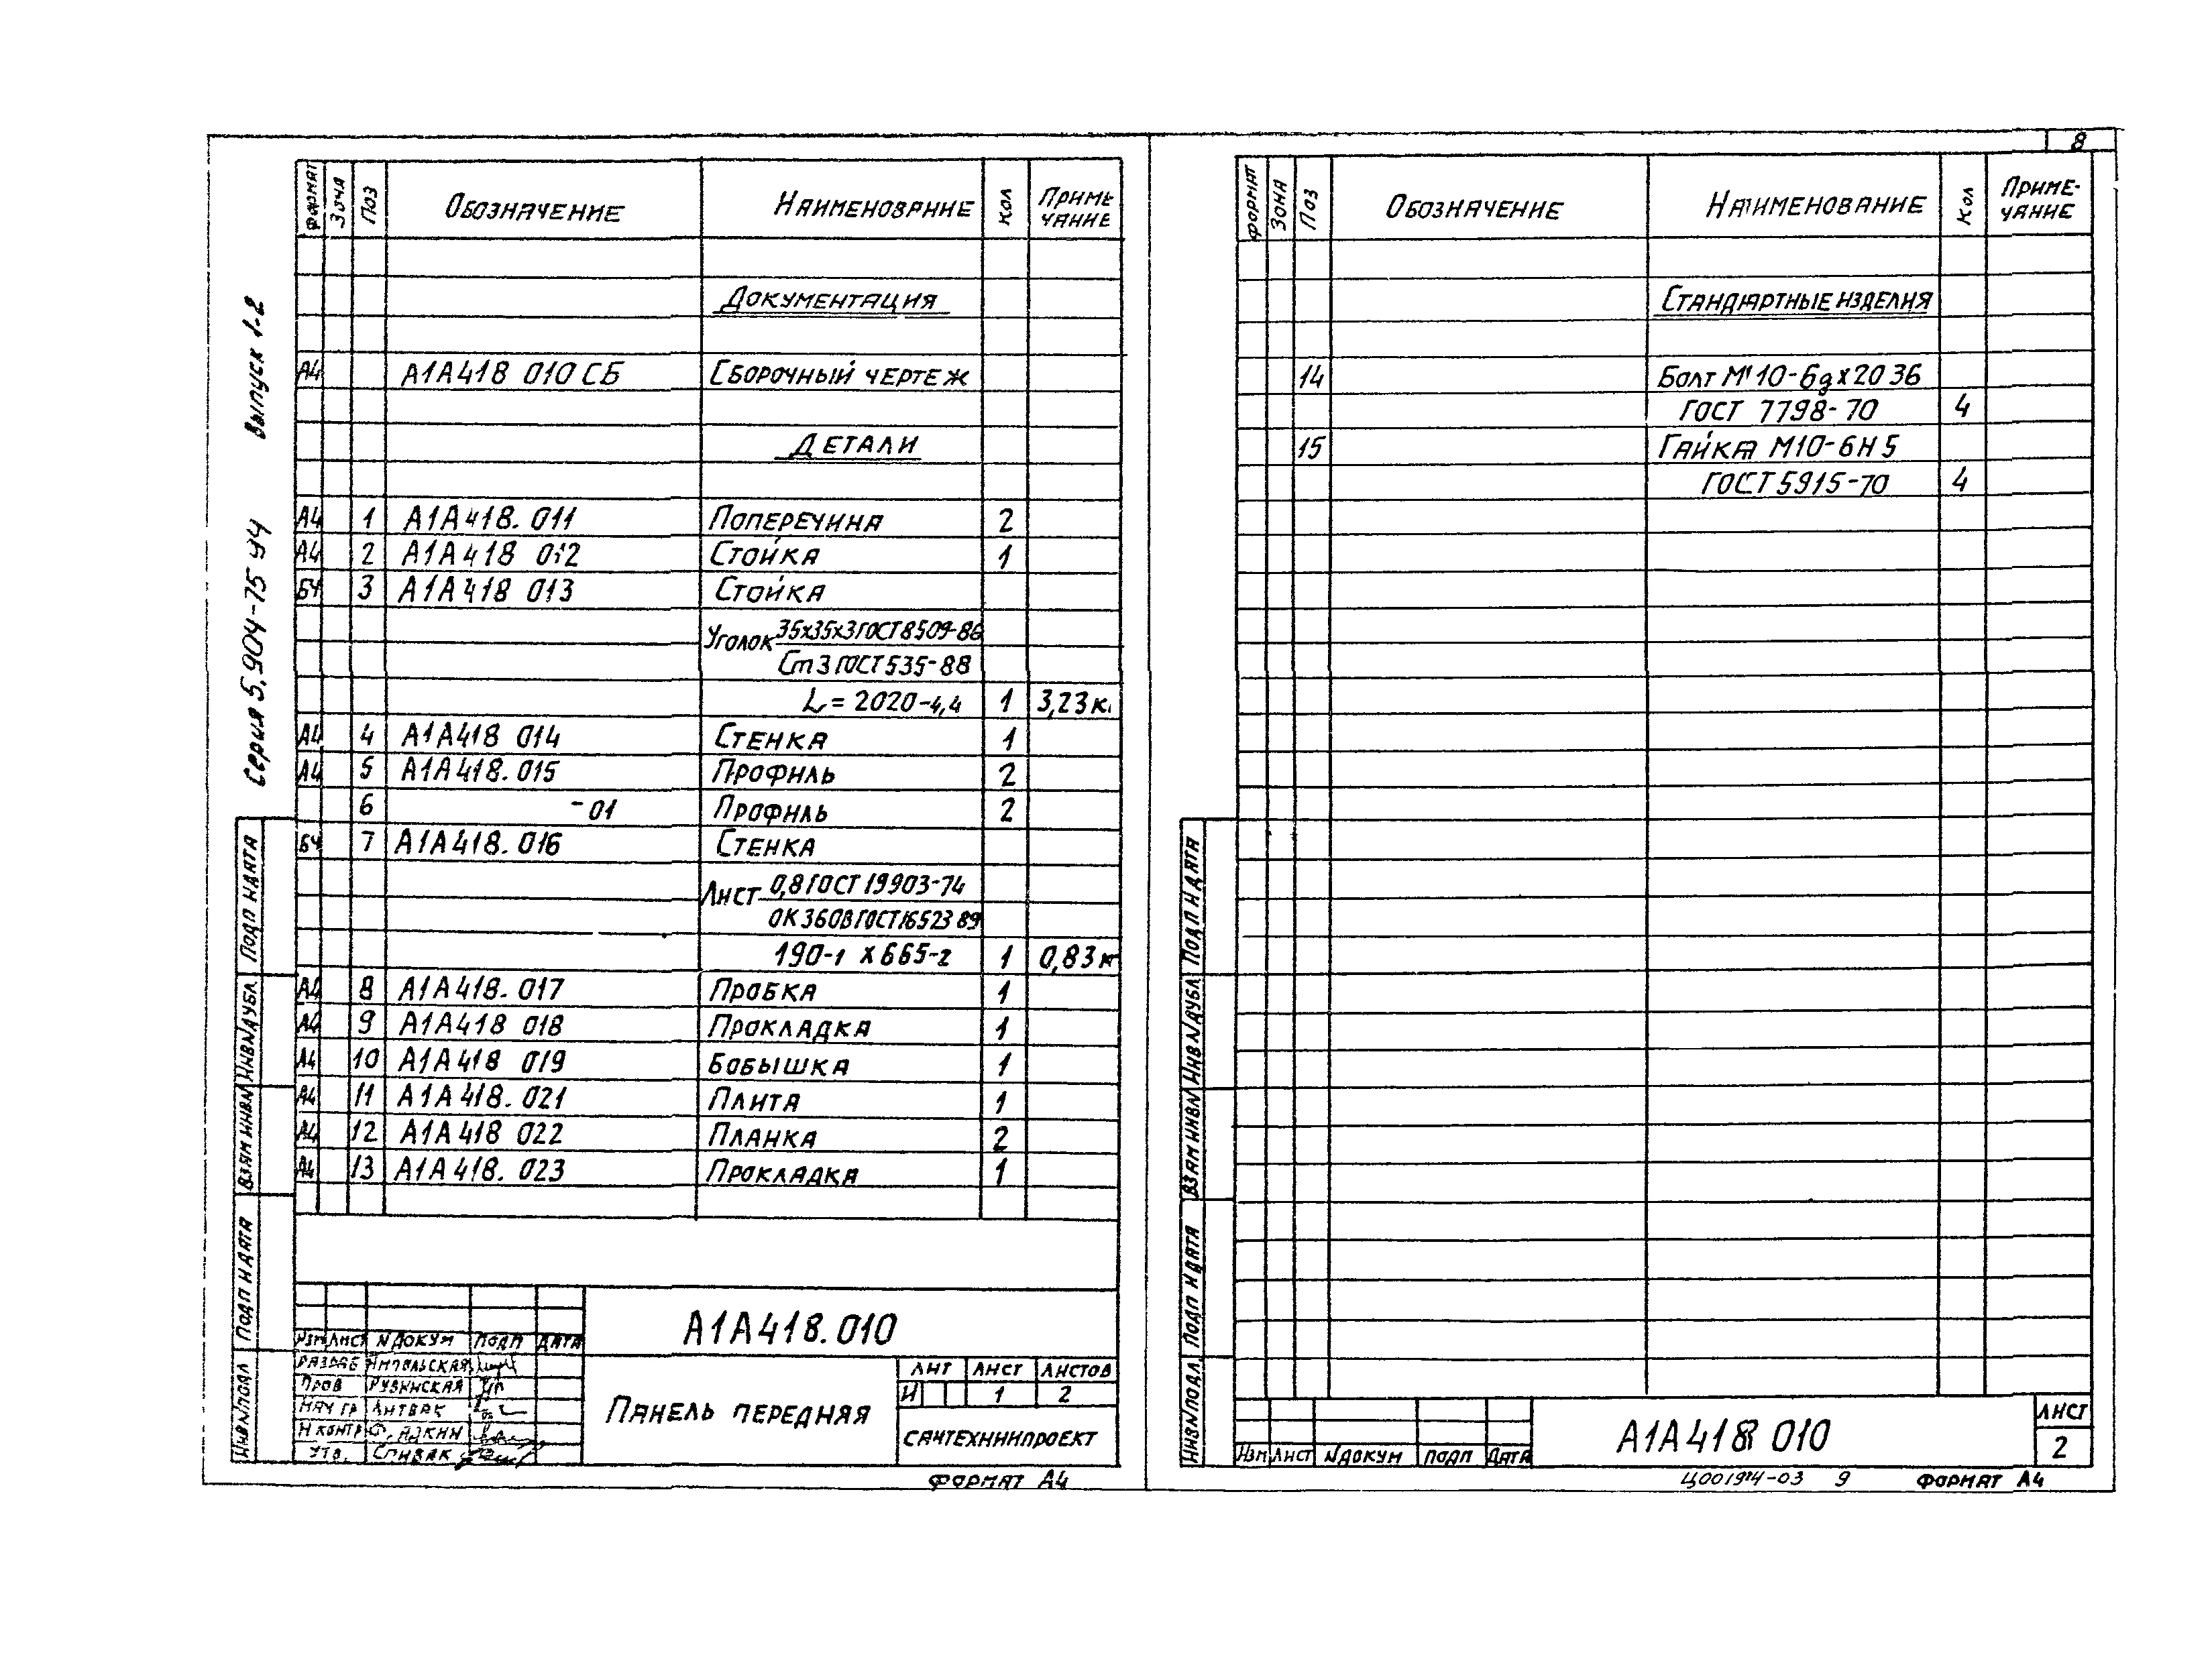 Серия 5.904-75 94 Выпуск 1-2
ФОРМАТ ЗОНА ПОЗ ОБОЗНАЧЕНИЕ НАИМЕНОВАНИЕ КОЛ ПРИМЕ
ЧАНИЕ
ДОКУМЕНТАЦИЯ
А4 А1А418 010 СБ СБОРОЧНЫЙ ЧЕРТЕЖ
ДЕТАЛИ
А4 1 А1А418. 011 ПОПЕРЕЧИНА 2
А4 2 А1А418 012 СТОЙКА 1
БЧ 3 А1А418 013 СТОЙКА
УГОЛОК 35х35х3 ГОСТ 8509-86
Ст 3 ГОСТ 535-88
L = 2020-4,4 1 3,23 к
А4 4 А1А418 014 СТЕНКА 1
А4 5 А1А418. 015 ПРОФИЛЬ 2
6 -01 ПРОФИЛЬ 2
БЧ 7 А1А418. 016 СТЕНКА
ЛИСТ 0,8 ГОСТ 19903-74
ОК 360В ГОСТ 16523 89
190-1 х 665-2 1 0,83 к
А4 8 А1А418. 017 ПРОБКА 1
А4 9 А1А418 018 ПРОКЛАДКА 1
А4 10 А1А418 019 БОБЫШКА 1
А4 11 А1А418. 021 ПЛИТА 1
А4 12 А1А418 022 ПЛАНКА 2
А4 13 А1А418. 023 ПРОКЛАДКА 1
ПОДП И ДАТА
ИНВ N ДУБЛ
ВЗАМ ИНВ N
ПОДП И ДАТА
ИНВ N ПОДЛ
А1А418.010
ИЗМ ЛИСТ N ДОКУМ ПОДП ДАТА
РАЗРАБ
ПРОВ РУБИНСКАЯ
НАЧ ГР ЛИТВАК
Н КОНТР
УТВ. СПИВАК
ПАНЕЛЬ ПЕРЕДНЯЯ
ЛИТ ЛИСТ ЛИСТОВ
И 1 2
САНТЕХНИИПРОЕКТ
ФОРМАТ А4
8
ФОРМАТ ЗОНА ПОЗ ОБОЗНАЧЕНИЕ НАИМЕНОВАНИЕ КОЛ ПРИМЕ-
ЧАНИЕ
СТАНДАРТНЫЕ ИЗДЕЛИЯ
14 Болт М 10-6gх20 36
ГОСТ 7798-70 4
15 ГАЙКА М10-6Н 5
ГОСТ 5915-70 4
ПОДП И ДАТА
ИНВ N ДУБЛ
ВЗАМ ИНВ N
ПОДП И ДАТА
ИНВ N ПОДЛ
ИЗМ ЛИСТ N ДОКУМ ПОДП ДАТА
А1А418 010
ЛИСТ
2
9 ФОРМАТ А4